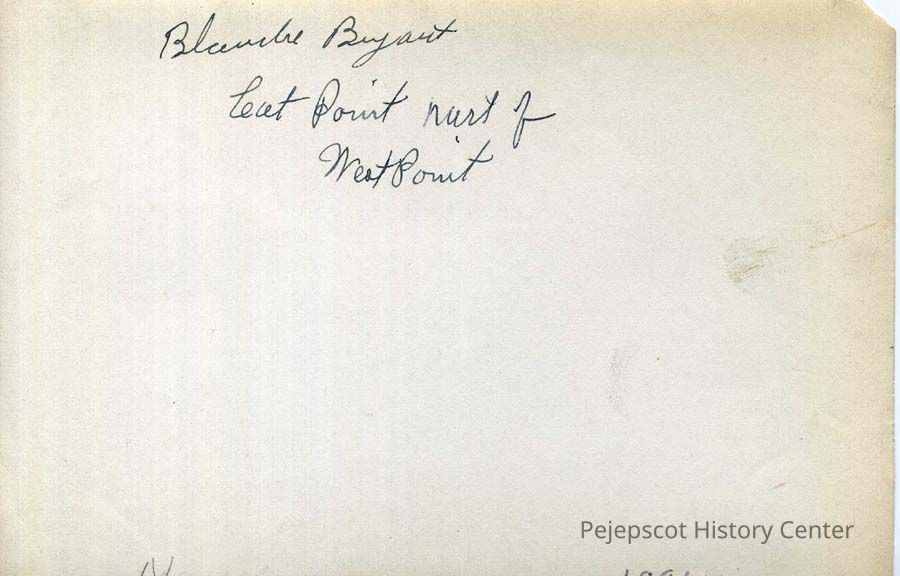 Blanche Bryant
Cat Point part of
West Point
Pejepscot History Center